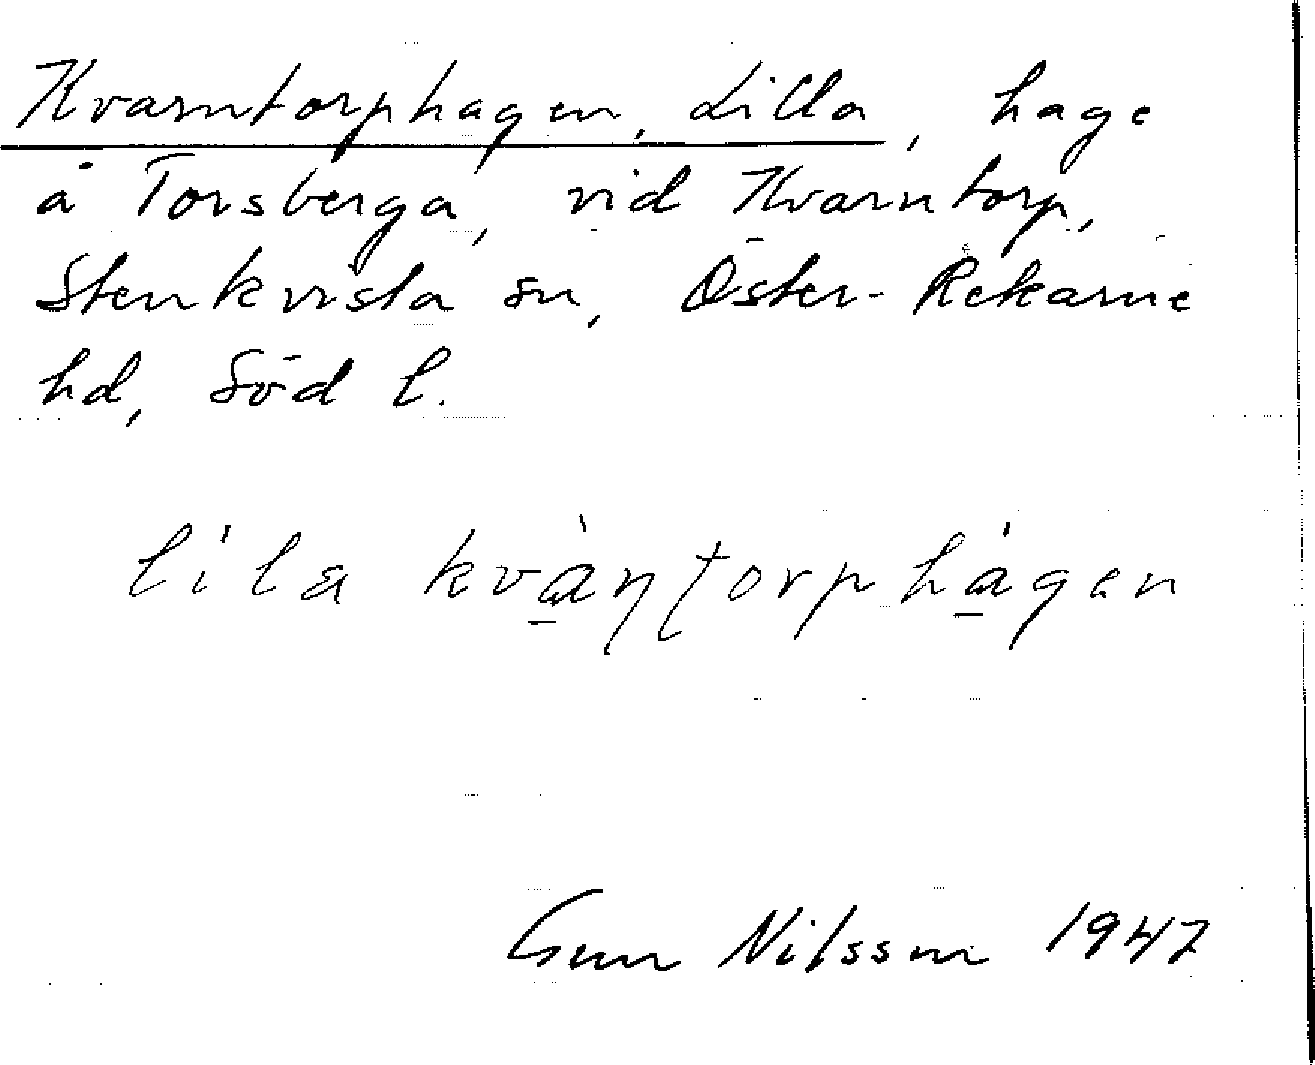 Kvarntorphagen, Lilla, hage
å Torsberga, vid Kvarntorp,
Stenkvista sn, Öster-Rekarne
hd, Söd l.
líla kvàṇṭorphágen
Gun Nilsson 1947